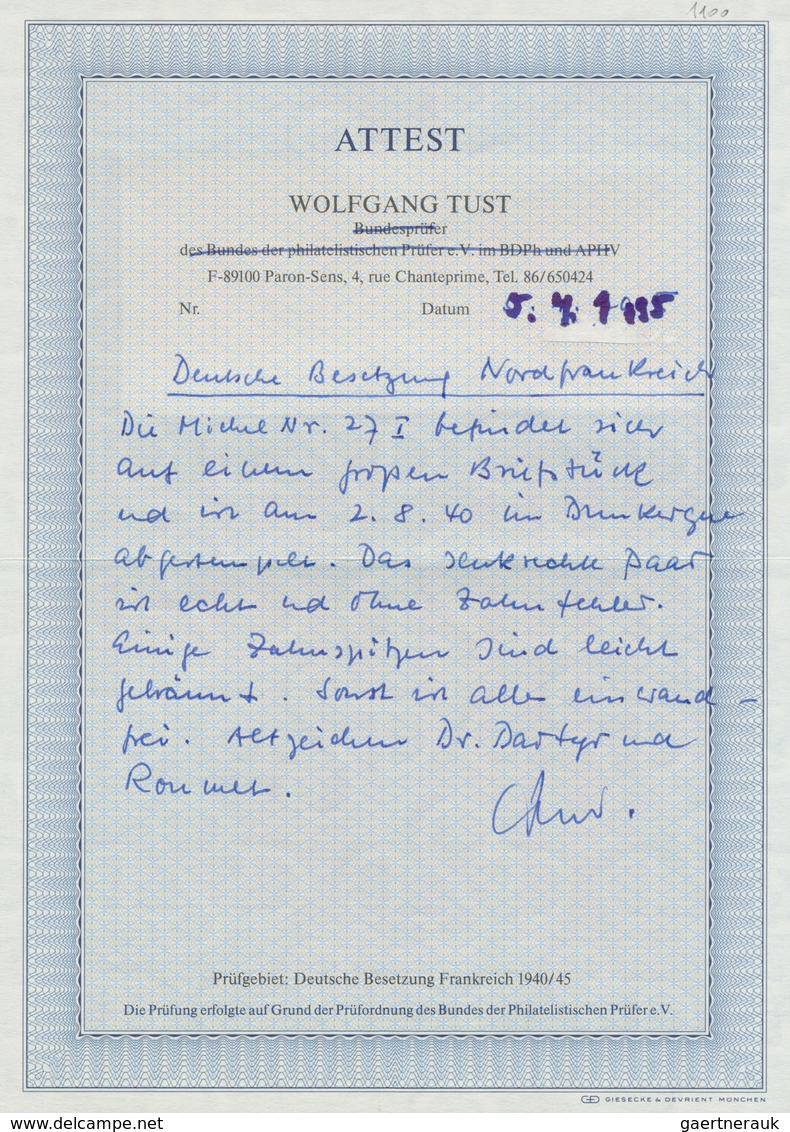 1100
ATTEST
WOLFGANG TUST
Bundesprüfer
des Bundes der philatelistischen Prüfer e.V. im BDPh und APHV
F-89100 Paron-Sens, 4, rue Chanteprime, Tel. 86/650424
Nr. Datum 5. 4. 1995
Deutsche Besetzung Nordfrankreich
Die Michel Nr. 27 I befindet sich
auf einem großen Briefstück
und ist am 2.8.40 in Dunkerque
abgestempelt. Das senkrechte Paar
ist echt und ohne Zahnfehler.
Einige Zahnspitzen sind leicht
gebräunt. Sonst ist alles einwand-
frei. Altzeichen Dr. Dartyr und
GIESECKE & DEVRIENT MÜNCHEN
Prüfgebiet: Deutsche Besetzung Frankreich 1940/45
Die Prüfung erfolgte auf Grund der Prüfordnung des Bundes der Philatelistischen Prüfer e.V.
www.delcampe.net
gaertnerauk